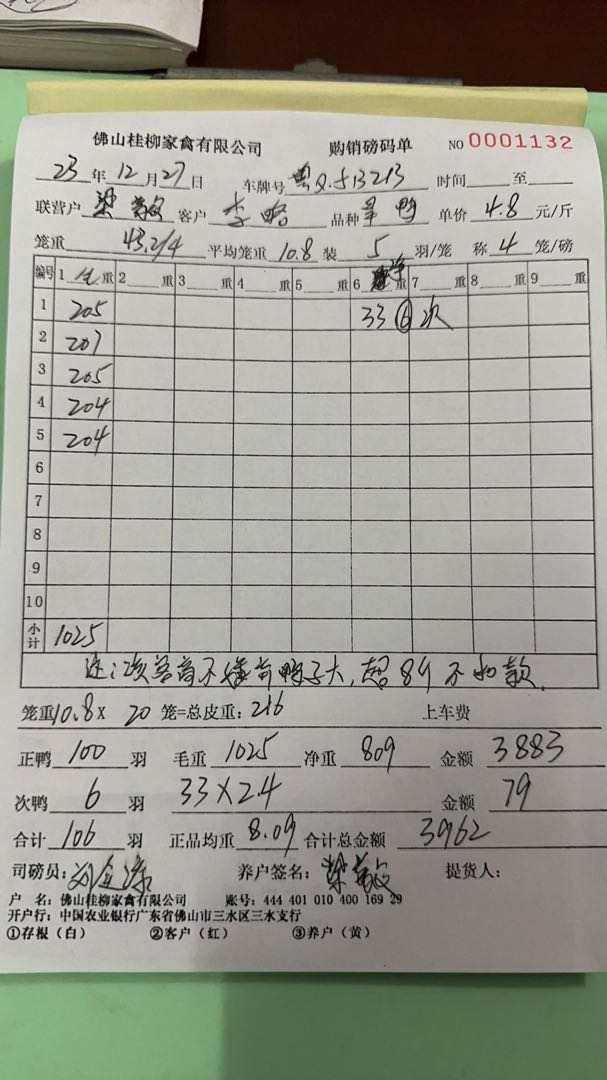 佛山桂柳家禽有限公司 购销磅码单 NO 0001132
23 年 12 月 27 日 车牌号 时间 至
联营户 梁 客户 李 品种 鸭 单价 4.8 元/斤
笼重 43.2/4 平均笼重 10.8 装 5 羽/笼 称 4 笼/磅
编号 1 重 2 重 3 重 4 重 5 重 6 重 7 重 8 重 9 重
1 205 33 ⑥次
2 207
3 205
4 204
5 204
6
7
8
9
10
小计 1025
不 鸭子大,超8斤不扣款.
笼重 10.8 × 20 笼=总皮重: 216 上车费
正鸭 100 羽 毛重 1025 净重 809 金额 3883
次鸭 6 羽 33×2.4 金额 79
合计 106 羽 正品均重 8.09 合计总金额 3962
司磅员: 养户签名: 梁 提货人:
户 名: 佛山桂柳家禽有限公司 账号: 444 401 010 400 169 29
开户行: 中国农业银行广东省佛山市三水区三水支行
①存根(白) ②客户(红) ③养户(黄)